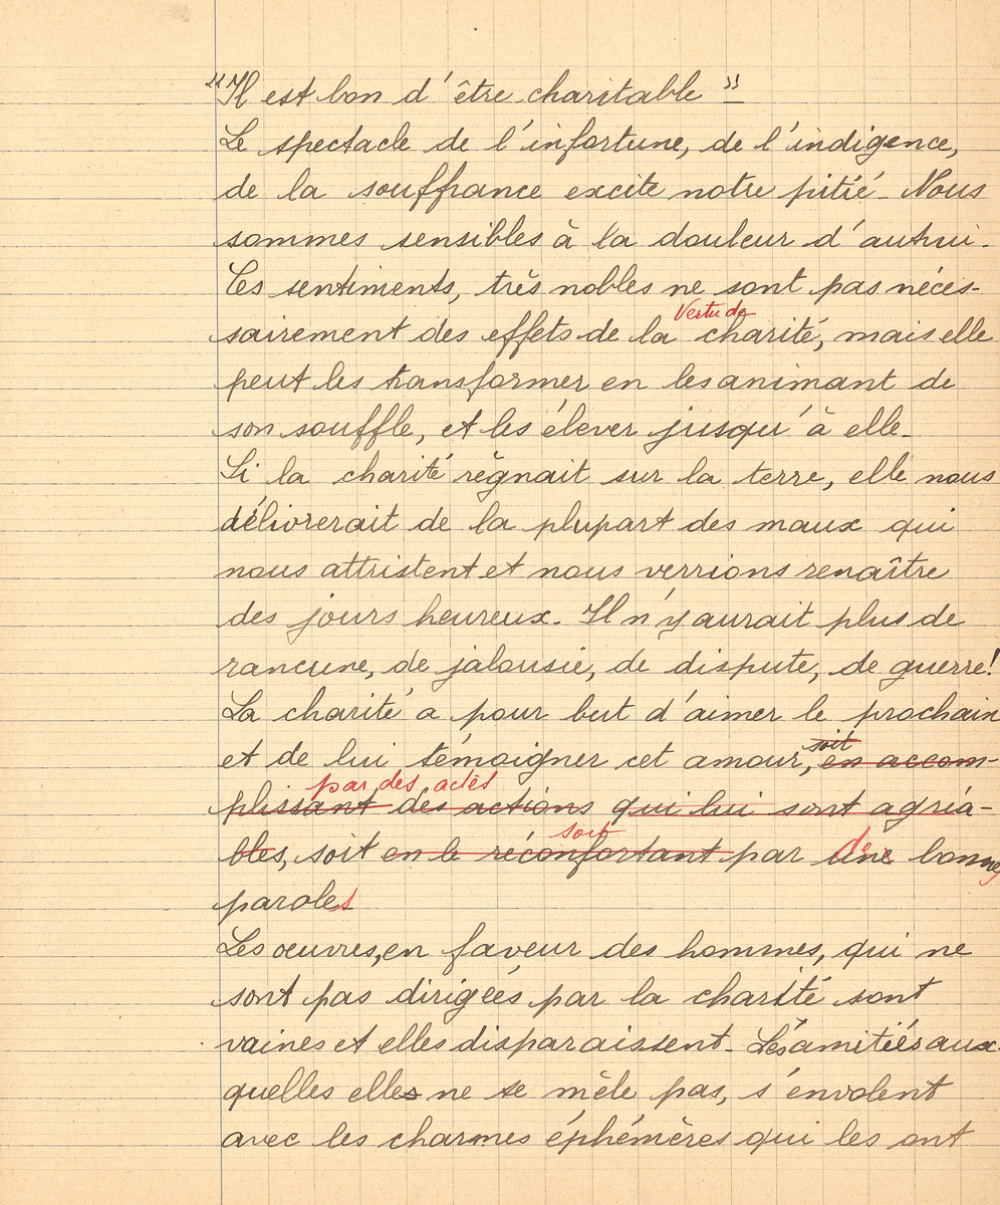 "Il est bon d'être charitable"
Le spectacle de l'infortune, de l'indigence,
de la souffrance excite notre pitié - Nous
sommes sensibles à la douleur d'autrui -
Ces sentiments, très nobles ne sont pas néces-
Vertu de
sairement des effets de la charité, mais elle
peut les transformer en les animant de
son souffle, et les élever jusqu'à elle -
Si la charité règnait sur la terre, elle nous
délivrerait de la plupart des maux qui
nous attristent et nous verrions renaître
des jours heureux. Il n'y aurait plus de
rancune, de jalousie, de dispute, de guerre!
La charité a pour but d'aimer le prochain
soit
et de lui témoigner cet amour, en accom-
par des actes
plissant des actions qui lui sont agréa-
soit des
bles, soit en le réconfortant par une bonnes
paroles
Les oeuvres, en faveur des hommes, qui ne
sont pas dirigées par la charité sont
vaines et elles disparaissent - Les amitiés aux-
quelles elles ne se mêle pas, s'envolent
avec les charmes éphémères qui les ont